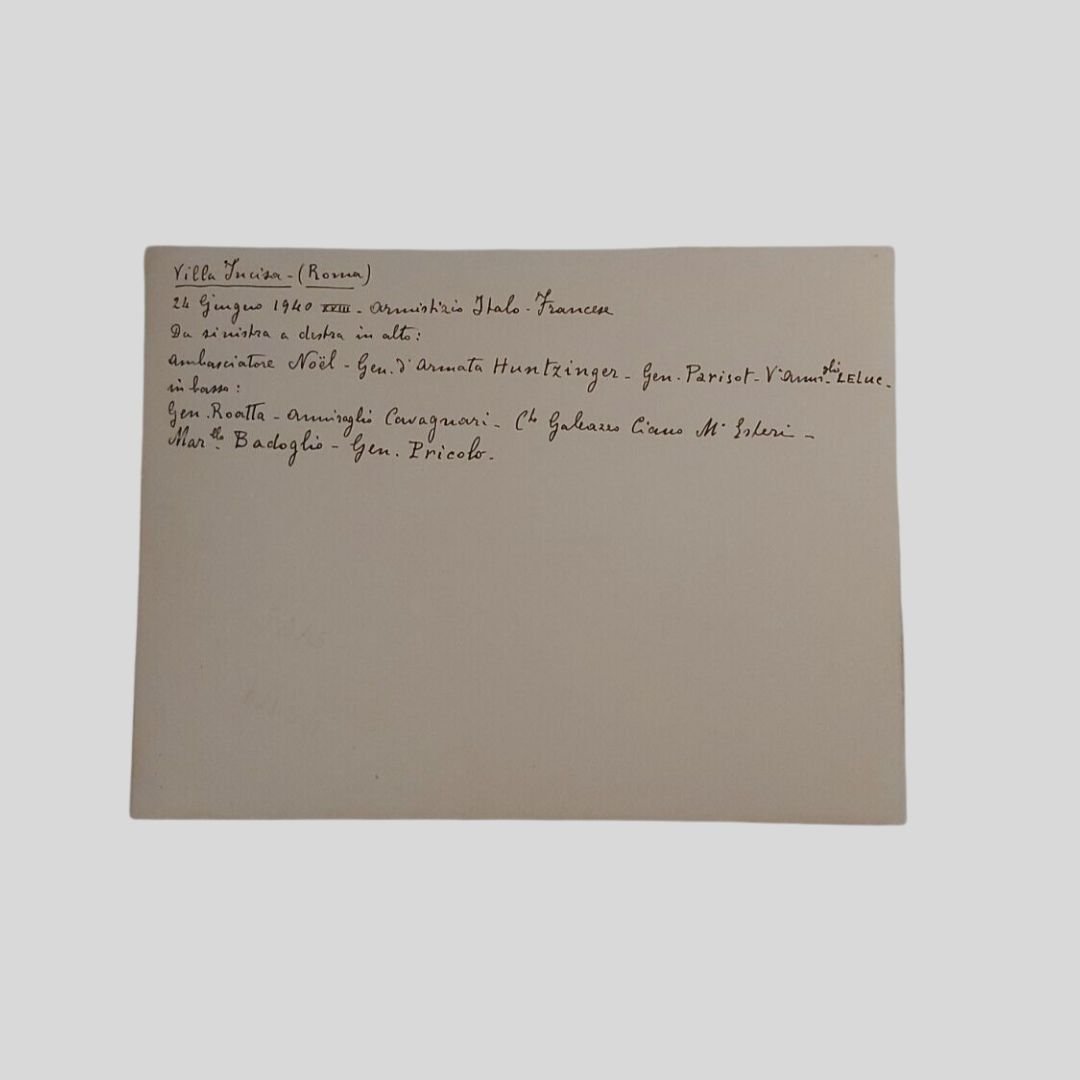 Villa Incisa - (Roma)
24 Giugno 1940 XVIII - Armistizio Italo-Francese
Da sinistra a destra in alto:
Ambasciatore Noël - Gen. d'Armata Huntzinger - Gen. Parisot - V'Ammi.glio LELUC -
in basso:
Gen. Roatta - Ammiraglio Cavagnari - Cte Galeazzo Ciano Mo Esteri -
Mar.llo Badoglio - Gen. Pricolo.